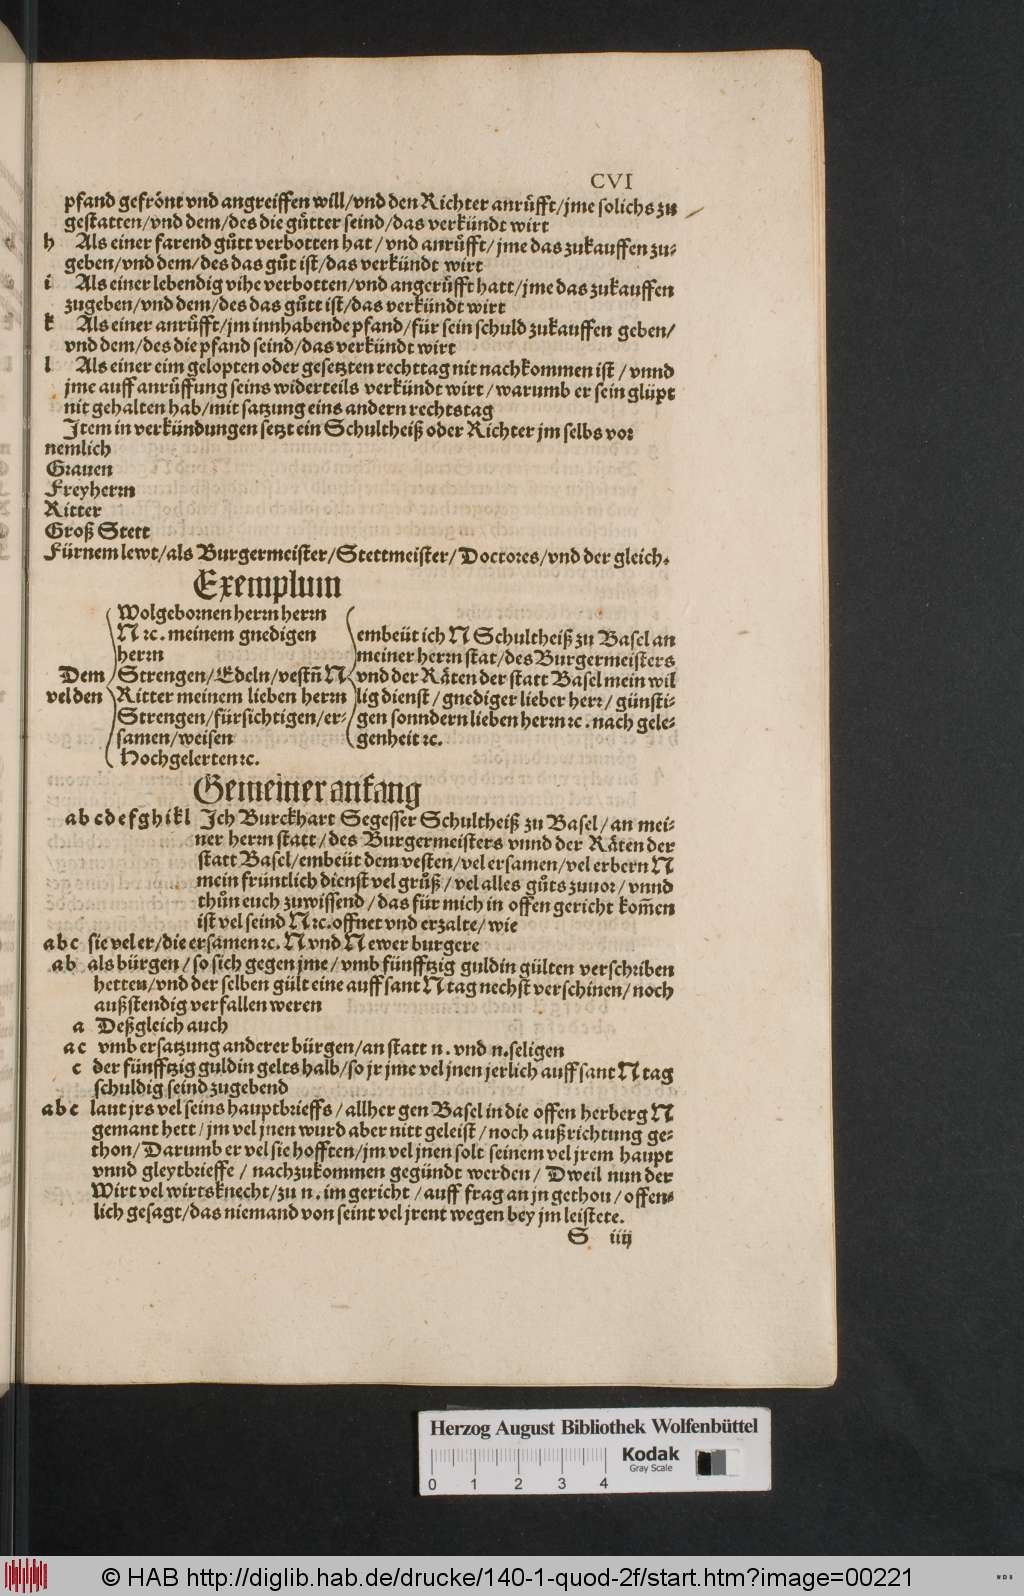 CVI
pfand gefrönt vnd angreiffen will/vnd den Richter anrůfft/jme solichs zu
gestatten/vnd dem/des die gůtter seind/das verkündt wirt
h Als einer farend gůtt verbotten hat/vnd anrůfft/jme das zukauffen zu-
geben/vnd dem/des das gůt ist/das verkündt wirt
i Als einer lebendig vihe verbotten/vnd angerůfft hatt/jme das zukauffen
zugeben/vnd dem/des das gůtt ist/das verkündt wirt
k Als einer anrůfft/jm innhabende pfand/für sein schuld zukauffen geben/
vnd dem/des die pfand seind/das verkündt wirt
l Als einer eim gelopten oder gesetzten rechttag nit nachkommen ist/vnnd
jme auff anrůffung seins widerteils verkündt wirt/warumb er sein glüpt
nit gehalten hab/mit satzung eins andern rechtstag
Item in verkündungen setzt ein Schultheiß oder Richter jm selbs vor
nemlich
Grauen
Freyherrn
Ritter
Groß Stett
Fürnem lewt/als Burgermeister/Stettmeister/Doctores/vnd der gleich.
Exemplum
Wolgebornen herrn herrn
N ꝛc. meinem gnedigen
herrn
Dem Strengen/Edeln/vestñ N
vel den Ritter meinem lieben herrn
Strengen/fürsichtigen/er-
samen/weisen
Hochgelerten ꝛc.
embeüt ich N Schultheiß zu Basel an
meiner herrn stat/des Burgermeisters
vnd der Räten der statt Basel mein wil
lig dienst/gnediger lieber herr/günsti-
gen sonndern lieben herrn ꝛc. nach gele-
genheit ꝛc.
Gemeiner anfang
a b c d e f g h i k l Ich Burckhart Segesser Schultheiß zu Basel/an mei-
ner herrn statt/des Burgermeisters vnnd der Räten der
statt Basel/embeüt dem vesten/vel ersamen/vel erbern N
mein früntlich dienst vel grůß/vel alles gůts zuuor/vnnd
thůn euch zuwissend/das für mich in offen gericht kom̄en
ist vel seind N ꝛc. offnet vnd erzalte/wie
a b c sie vel er/die ersamen ꝛc. N vnd N ewer burgere
a b als bürgen/so sich gegen jme/vmb fünfftzig guldin gülten verschriben
hetten/vnd der selben gült eine auff sant N tag nechst verschinen/noch
außstendig verfallen weren
a Deßgleich auch
a c vmb ersatzung anderer bürgen/an statt n. vnd n. seligen
c der fünfftzig guldin gelts halb/so jr jme vel jnen jerlich auff sant N tag
schuldig seind zugebend
a b c laut jrs vel seins hauptbrieffs/allher gen Basel in die offen herberg N
gemant hett/jm vel jnen wurd aber nitt geleist/noch außrichtung ge-
thon/Darumb er vel sie hofften/jm vel jnen solt seinem vel jrem haupt
vnnd gleytbrieffe/nachzukommen gegündt werden/Dweil nun der
Wirt vel wirtsknecht/zu n. im gericht/auff frag an jn gethou/offen-
lich gesagt/das niemand von seint vel jrent wegen bey jm leistete.
S iiij
Herzog August Bibliothek Wolfenbüttel
Kodak
Gray Scale
0 1 2 3 4
© HAB http://diglib.hab.de/drucke/140-1-quod-2f/start.htm?image=00221